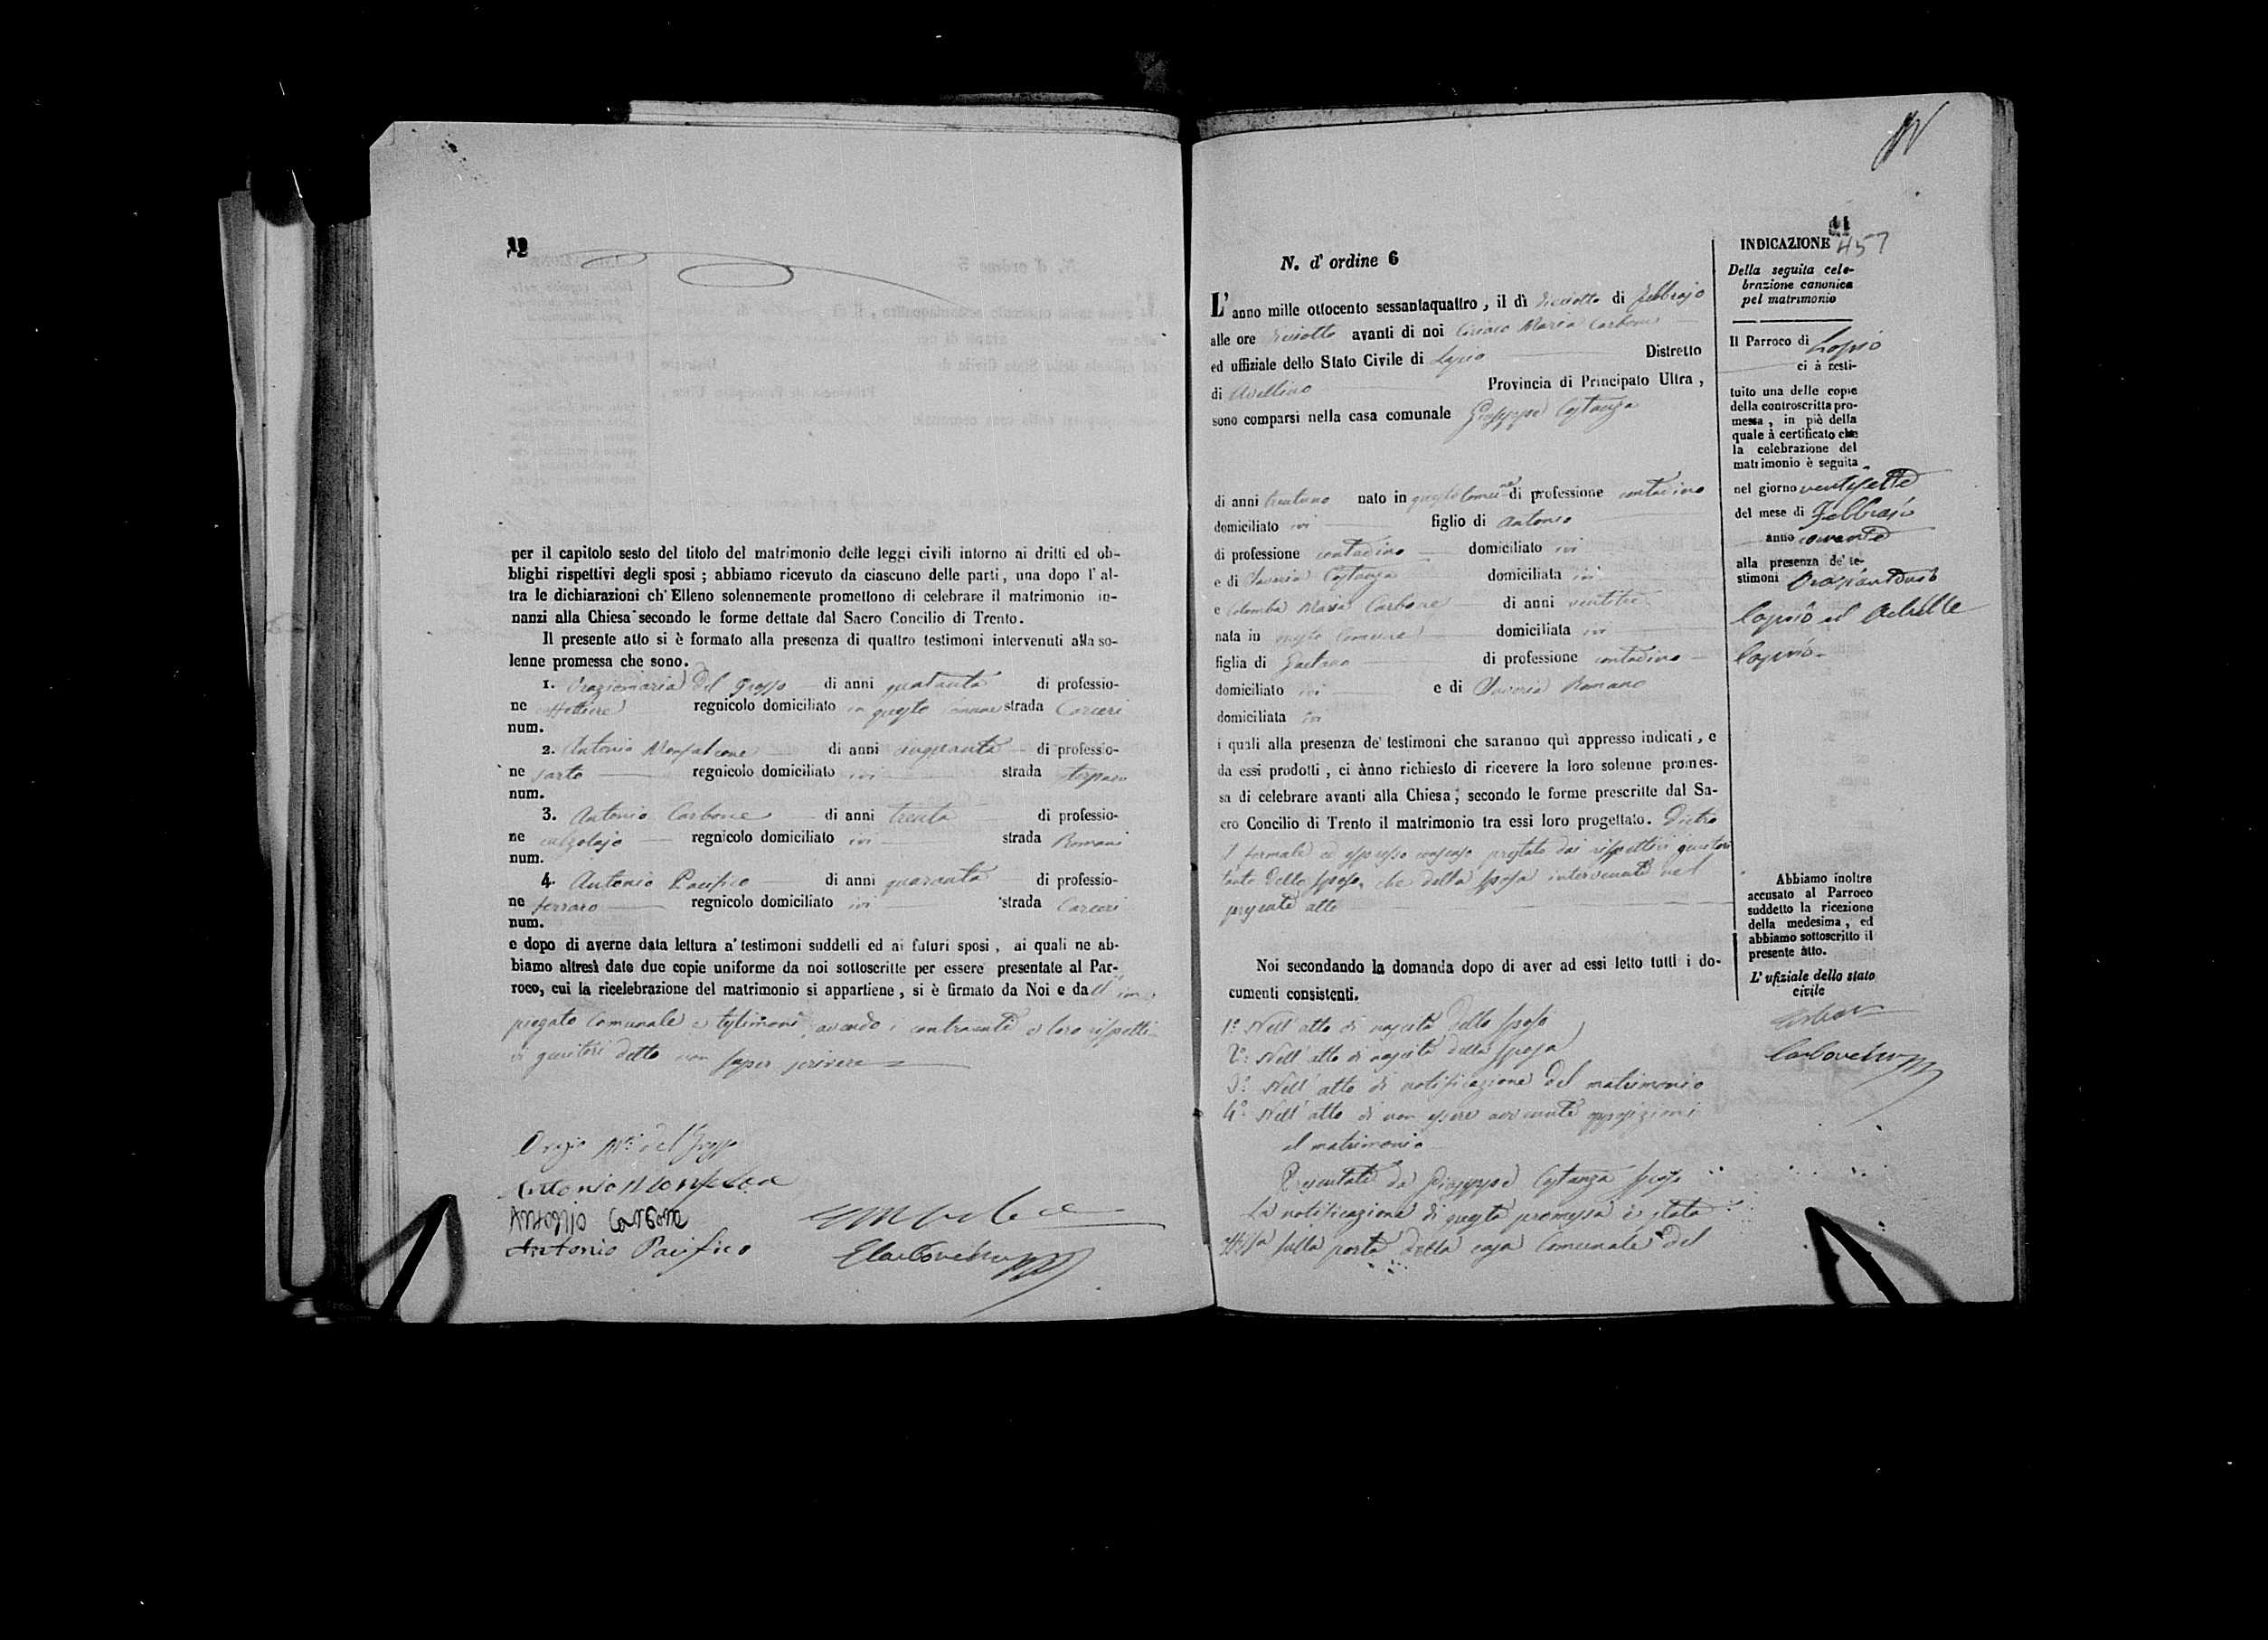 12
per il capitolo sesto del titolo del matrimonio delle leggi civili intorno ai dritti ed ob-
blighi rispettivi degli sposi ; abbiamo ricevuto da ciascuno delle parti, una dopo l'al-
tra le dichiarazioni ch' Elleno solennemente promettono di celebrare il matrimonio in-
nanzi alla Chiesa secondo le forme dettate dal Sacro Concilio di Trento.
Il presente atto si è formato alla presenza di quattro testimoni intervenuti alla so-
lenne promessa che sono.
1. Oraziomaria del Grosso di anni quaranta di professio-
ne regnicolo domiciliato in questo comune strada Carceri
num.
2. Antonio Monfalcone di anni cinquanta di professio-
ne sarto regnicolo domiciliato ivi strada
num.
3. Antonio Carbone di anni trenta di professio-
ne calzolajo regnicolo domiciliato ivi strada Romani
num.
4. Antonio Pacifico di anni quaranta di professio-
ne ferraro regnicolo domiciliato ivi strada Carceri
num.
e dopo di averne data lettura a' testimoni suddetti ed ai futuri sposi , ai quali ne ab-
biamo altresì date due copie uniforme da noi sottoscritte per essere presentate al Par-
roco, cui la ricelebrazione del matrimonio si appartiene , si è firmato da Noi e dall' im
piegato Comunale e testimoni avendo i contraenti e loro rispetti-
vi genitori detto non saper scrivere
Orazio Ma del Grosso
Antonio Monfalcone
Antonio Carbone
Antonio Pacifico
11
457
N. d' ordine 6
L' anno mille ottocento sessantaquattro , il dì dieciotto di Febbrajo
alle ore dieciotto avanti di noi Ciriaco Maria Carbone
ed uffiziale dello Stato Civile di Lapio Distretto
di Avellino Provincia di Principato Ultra ,
sono comparsi nella casa comunale Giuseppe Costanza
di anni trentuno nato in questo Comune di professione contadino
domiciliato ivi figlio di Antonio
di professione contadino domiciliato ivi
e di Saveria Costanza domiciliata ivi
e Colomba Maria Carbone di anni ventitre
nata in questo Comune domiciliata ivi
figlia di Gaetano di professione contadino
domiciliato ivi e di Saveria Romano
domiciliata ivi
i quali alla presenza de' testimoni che saranno quì appresso indicati , e
da essi prodotti , ci ànno richiesto di ricevere la loro solenne promes-
sa di celebrare avanti alla Chiesa, secondo le forme prescritte dal Sa-
cro Concilio di Trento il matrimonio tra essi loro progettato. Dietro
il formale ed espresso consenso prestato dai rispettivi genitori
tanto dello sposo, che della sposa intervenuti nel
presente atto
Noi secondando la domanda dopo di aver ad essi letto tutti i do-
cumenti consistenti.
1º Nell' atto di nascita dello sposo
2º Nell' atto di nascita della sposa
3º Nell' atto di notificazione del matrimonio
4º Nell' atto di non essere avvenute opposizioni
al matrimonio
Presentati da Giuseppe Costanza sposo
La notificazione di questa promessa è stata
affissa sulla porta della casa Comunale del
INDICAZIONE
Della seguita cele-
brazione canonica
pel matrimonio
Il Parroco di Lapio
ci à resti-
tuito una delle copie
della controscritta pro-
messa , in piè della
quale à certificato che
la celebrazione del
matrimonio è seguita
nel giorno ventisette
del mese di Febbrajo
anno corrente
alla presenza de' te-
stimoni
ed Achille
Abbiamo inoltre
accusato al Parroco
suddetto la ricezione
della medesima , ed
abbiamo sottoscritto il
presente atto.
L' ufiziale dello stato
civile